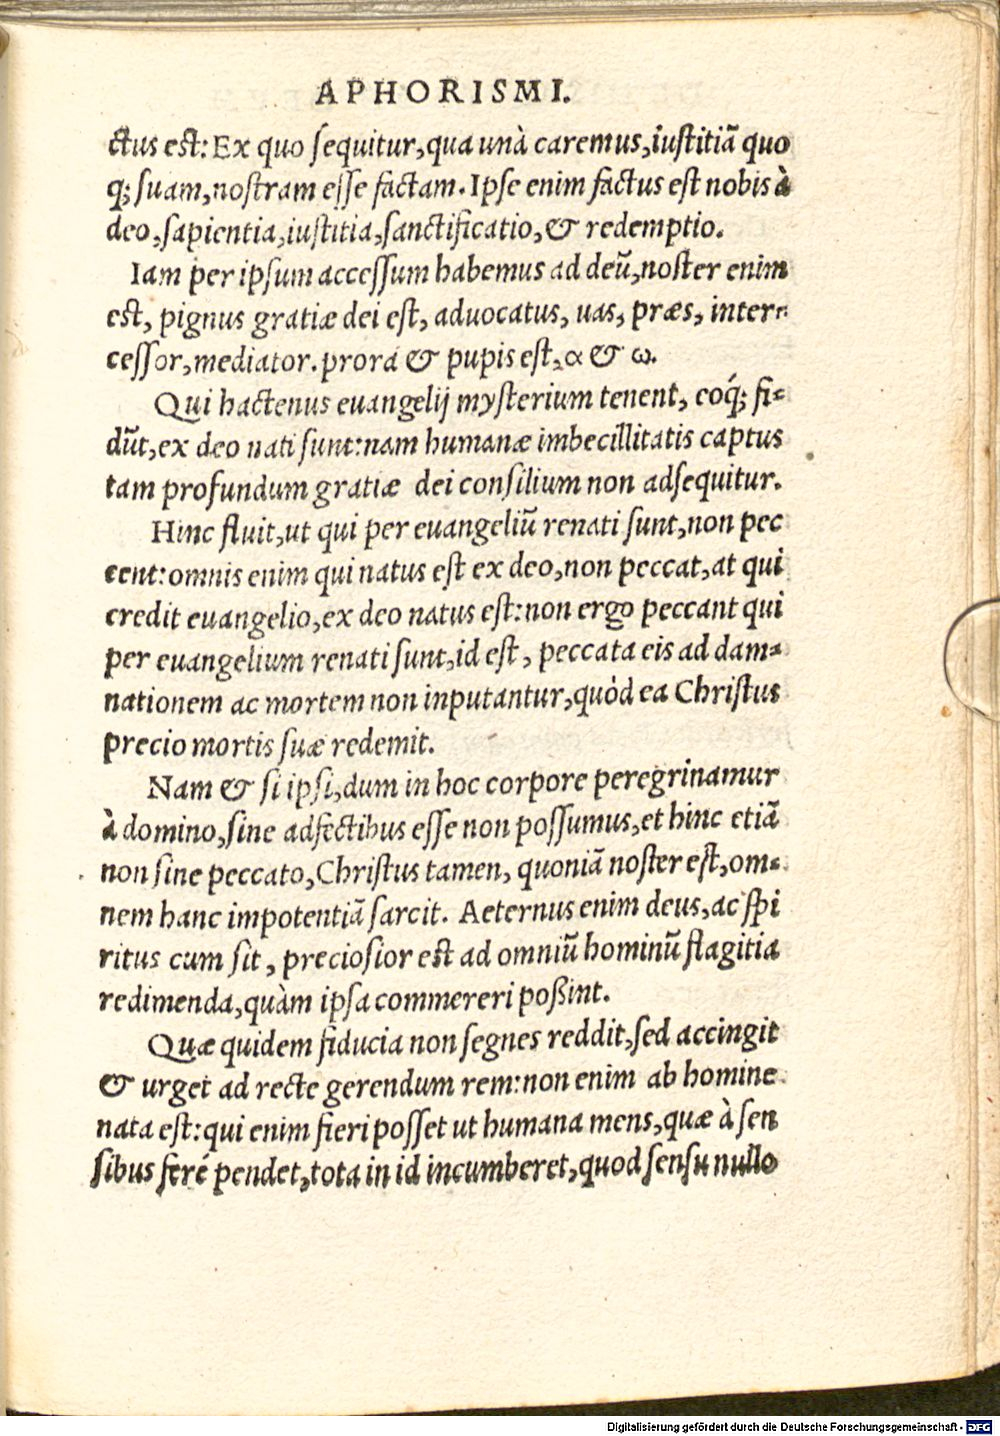 APHORISMI.
ctus est: Ex quo sequitur, qua unà caremus, iustitiã quo
q; suam, nostram esse factam. Ipse enim factus est nobis à
deo, sapientia, iustitia, sanctificatio, & redemptio.
Iam per ipsum accessum habemus ad deũ, noster enim
est, pignus gratiæ dei est, aduocatus, uas, præs, inter-
cessor, mediator. prora & pupis est, α & ω.
Qui hactenus euangelij mysterium tenent, eoq́; fi-
dũt, ex deo nati sunt: nam humanæ imbecillitatis captus
tam profundum gratiæ dei consilium non adsequitur.
Hinc fluit, ut qui per euangeliũ renati sunt, non pec
cent: omnis enim qui natus est ex deo, non peccat, at qui
credit euangelio, ex deo natus est: non ergo peccant qui
per euangelium renati sunt, id est, peccata eis ad dam-
nationem ac mortem non inputantur, quòd ea Christus
precio mortis suæ redemit.
Nam & si ipsi, dum in hoc corpore peregrinamur
à domino, sine adfectibus esse non possumus, et hinc etiã
non sine peccato, Christus tamen, quoniã noster est, om-
nem hanc impotentiã sarcit. Aeternus enim deus, ac spi
ritus cum sit, preciosior est ad omniũ hominũ flagitia
redimenda, quàm ipsa commereri poßint.
Quæ quidem fiducia non segnes reddit, sed accingit
& urget ad recte gerendum rem: non enim ab homine
nata est: qui enim fieri posset ut humana mens, quæ à sen
sibus feré pendet, tota in id incumberet, quod sensu nullo
Digitalisierung gefördert durch die Deutsche Forschungsgemeinschaft - DFG